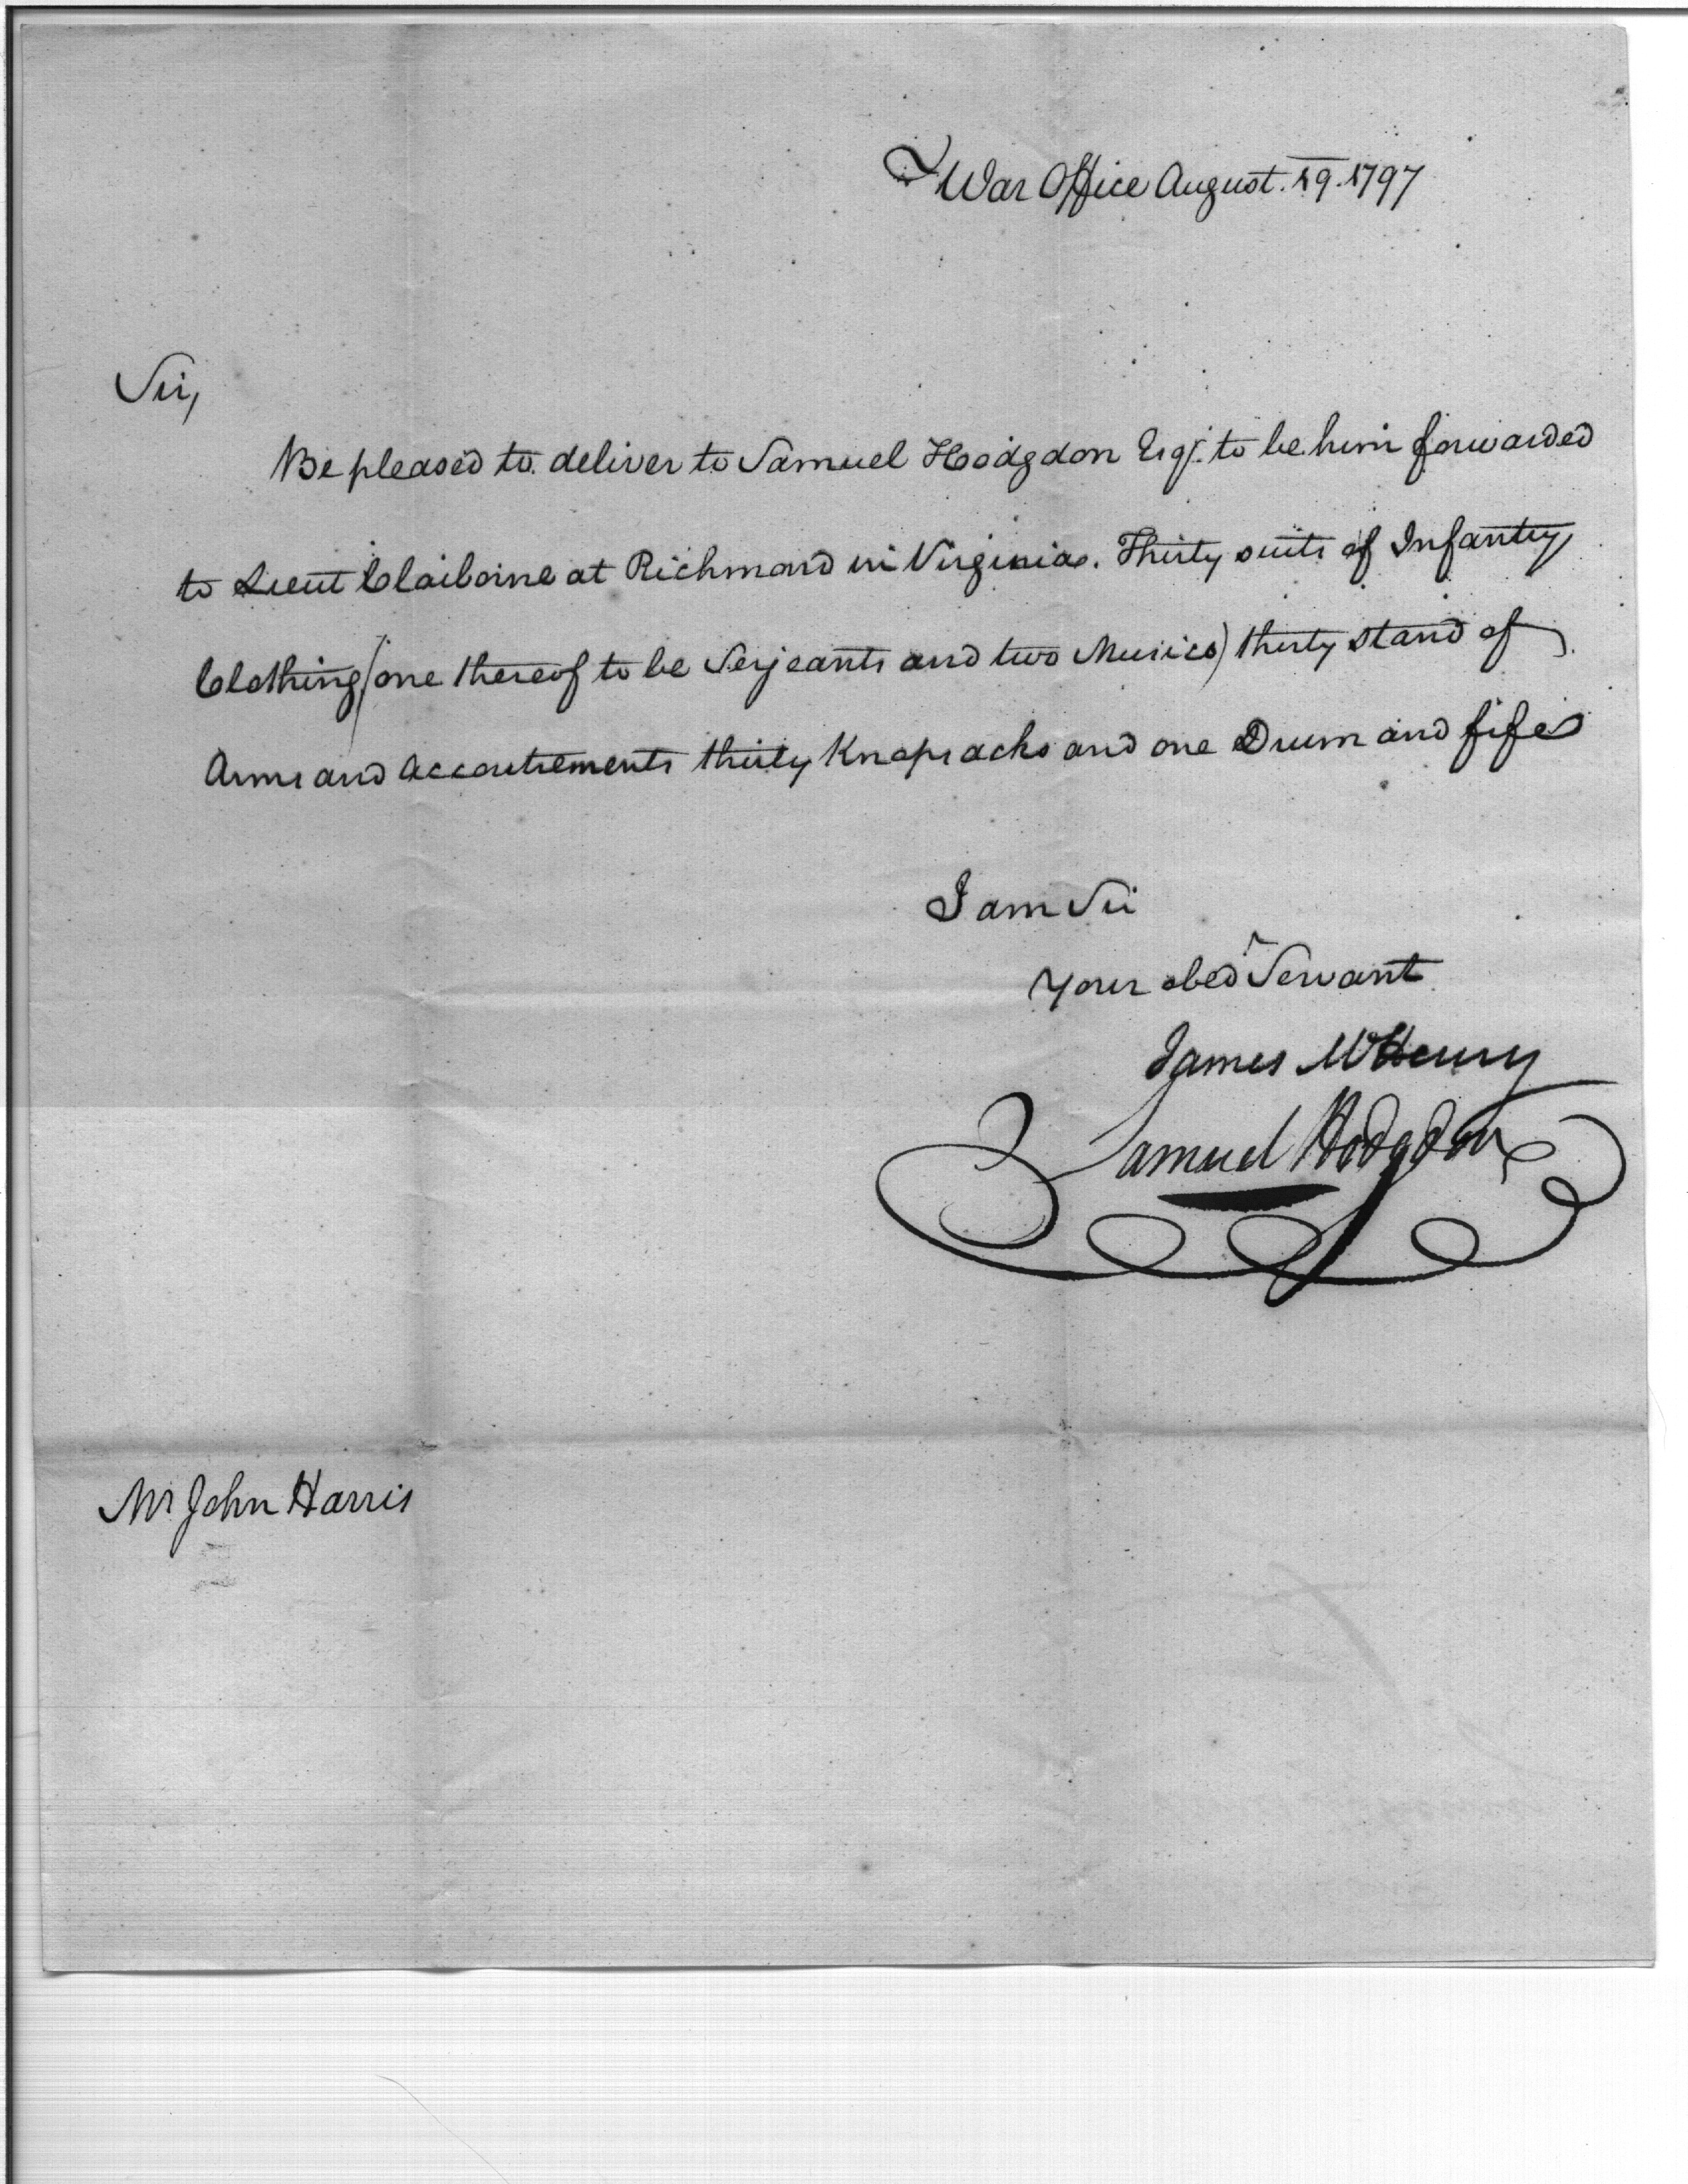 War Office August. 19. 1797
Sir,
Be pleased to deliver to Samuel Hodgdon Esqr. to be him forwarded
to Lieut Claiborne at Richmond in Virginia. Thirty suits of Infantry
Clothing (one thereof to be Serjeants and two Musics) thirty stand of
Arms and Accoutrements thirty Knapsacks and one Drum and fife
I am Sir
Your obedt Servant
James McHenry
Samuel Hodgdon
Mr John Harris